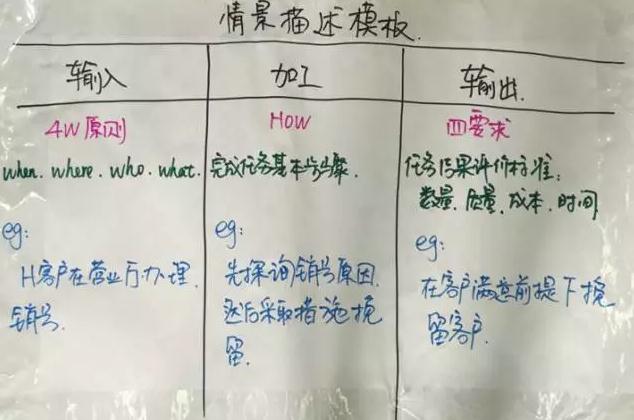 情景描述模板.
输入
加工
输出.
4W原则
How
四要求
when. where. who. what.
完成任务基本步骤.
任务结果评价标准:
数量. 质量. 成本. 时间
eg:
H客户在营业厅办理
销号.
eg:
先探询销号原因.
然后采取措施挽
留.
eg:
在客户满意前提下挽
留客户.